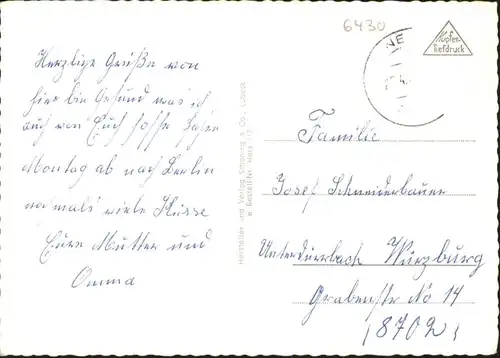 6430
Kupfer-
Tiefdruck
Herzlige Grüße von
hier bin Gesund was ich
auch von Euch hoffe fahre
Montag ab nach Berlin
nochmals viele Küsse
Eure Mutter und
Omma
Hersteller und Verlag Schöning & Co., Lübeck
Bestell-Nr. Harz
Familie
Josef Schneiderbauer
Unterdürrbach Würzburg
Grabenstr No 14
(8702)